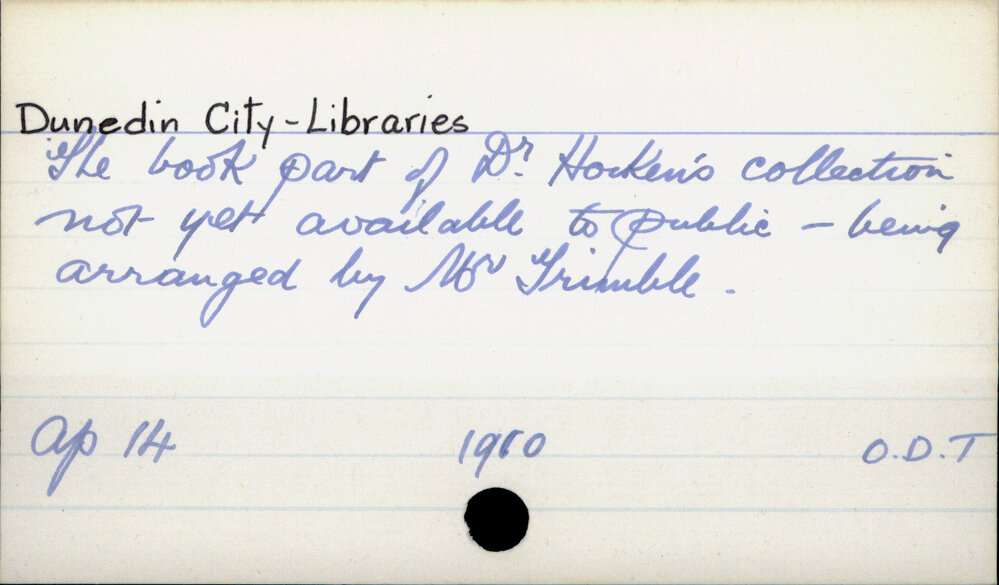 Dunedin City - Libraries
The book part of Dr. Hocken's collection
not yet available to public - being
arranged by Mr Trimble.
Ap 14 1910 O.D.T